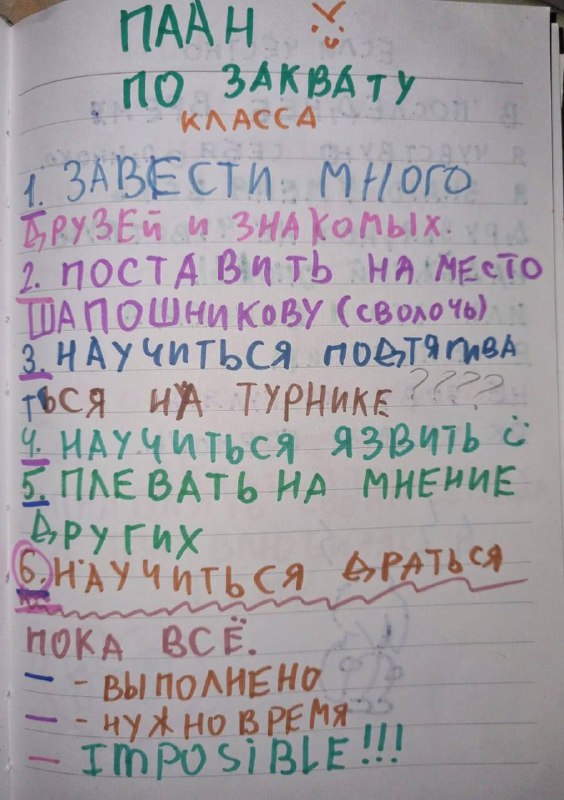 ПЛАН
ПО ЗАКВАТУ
КЛАССА
1. ЗАВЕСТИ МНОГО
ДРУЗЕЙ И ЗНАКОМЫХ.
2. ПОСТАВИТЬ НА МЕСТО
ШАПОШНИКОВУ (СВОЛОЧЬ)
3. НАУЧИТЬСЯ ПОДТЯГИВА
ТЬСЯ НА ТУРНИКЕ ????
4. НАУЧИТЬСЯ ЯЗВИТЬ
5. ПЛЕВАТЬ НА МНЕНИЕ
ДРУГИХ
6. НАУЧИТЬСЯ ДРАТЬСЯ
ПОКА ВСЁ.
— - ВЫПОЛНЕНО
— - НУЖНО ВРЕМЯ
— IMPOSIBLE!!!